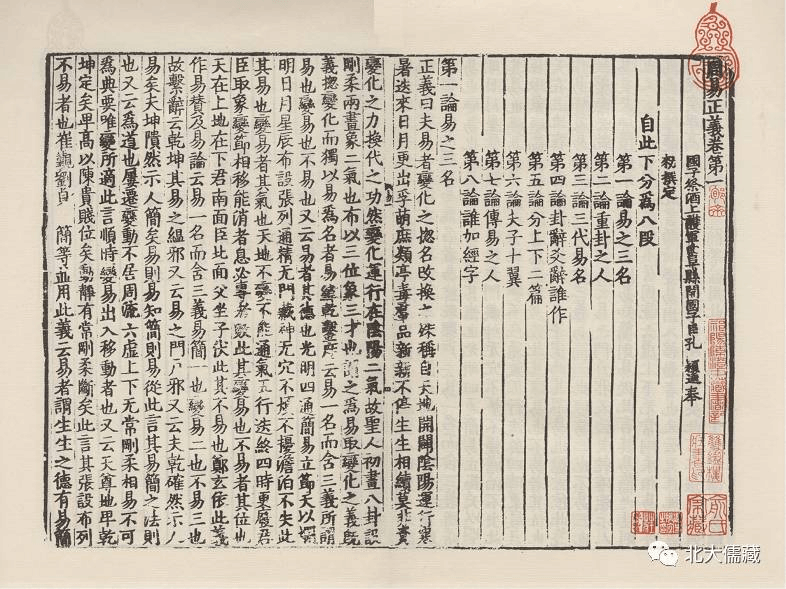 周易正義卷第一
國子祭酒上護軍曲阜縣開國子臣孔穎達奉
勑撰定
自此下分爲八段
第一論易之三名
第二論重卦之人
第三論三代易名
第四論卦辭爻辭誰作
第五論分上下二篇
第六論夫子十翼
第七論傳易之人
第八論誰加經字
第一論易之三名
正義曰夫易者變化之揔名改換之殊稱自天地開闢陰陽運行寒
暑迭來日月更出孚萌庶類亭毒羣品新新不停生生相續莫非資
變化之力換代之功然變化運行在陰陽二氣故聖人初畫八卦設
剛柔兩畫象二氣也布以三位象三才也謂之爲易取變化之義既
義揔變化而獨以易爲名者易緯乾鑿度云易一名而含三義所謂
易也變易也不易也又云易者其德也光明四通簡易立節天以爛
明日月星辰布設張列通精无門藏神无穴不煩不擾澹泊不失此
其易也變易者其氣也天地不變不能通氣五行迭終四時更廢君
臣取象變節相移能消者息必專者敗此其變易也不易者其位也
天在上地在下君南面臣北面父坐子伏此其不易也鄭玄依此義
作易贊及易論云易一名而含三義易簡一也變易二也不易三也
故繫辭云乾坤其易之緼邪又云易之門户邪又云夫乾確然示人
易矣夫坤隤然示人簡矣易則易知簡則易從此言其易簡之法則
也又云爲道也屢遷變動不居周流六虛上下无常剛柔相易不可
爲典要唯變所適此言順時變易出入移動者也又云天尊地卑乾
坤定矣卑高以陳貴賤位矣動靜有常剛柔斷矣此言其張設布列
不易者也崔覲劉貞簡等並用此義云易者謂生生之德有易簡
祁陽陳澄中藏書記
俞氏家藏
北大儒藏